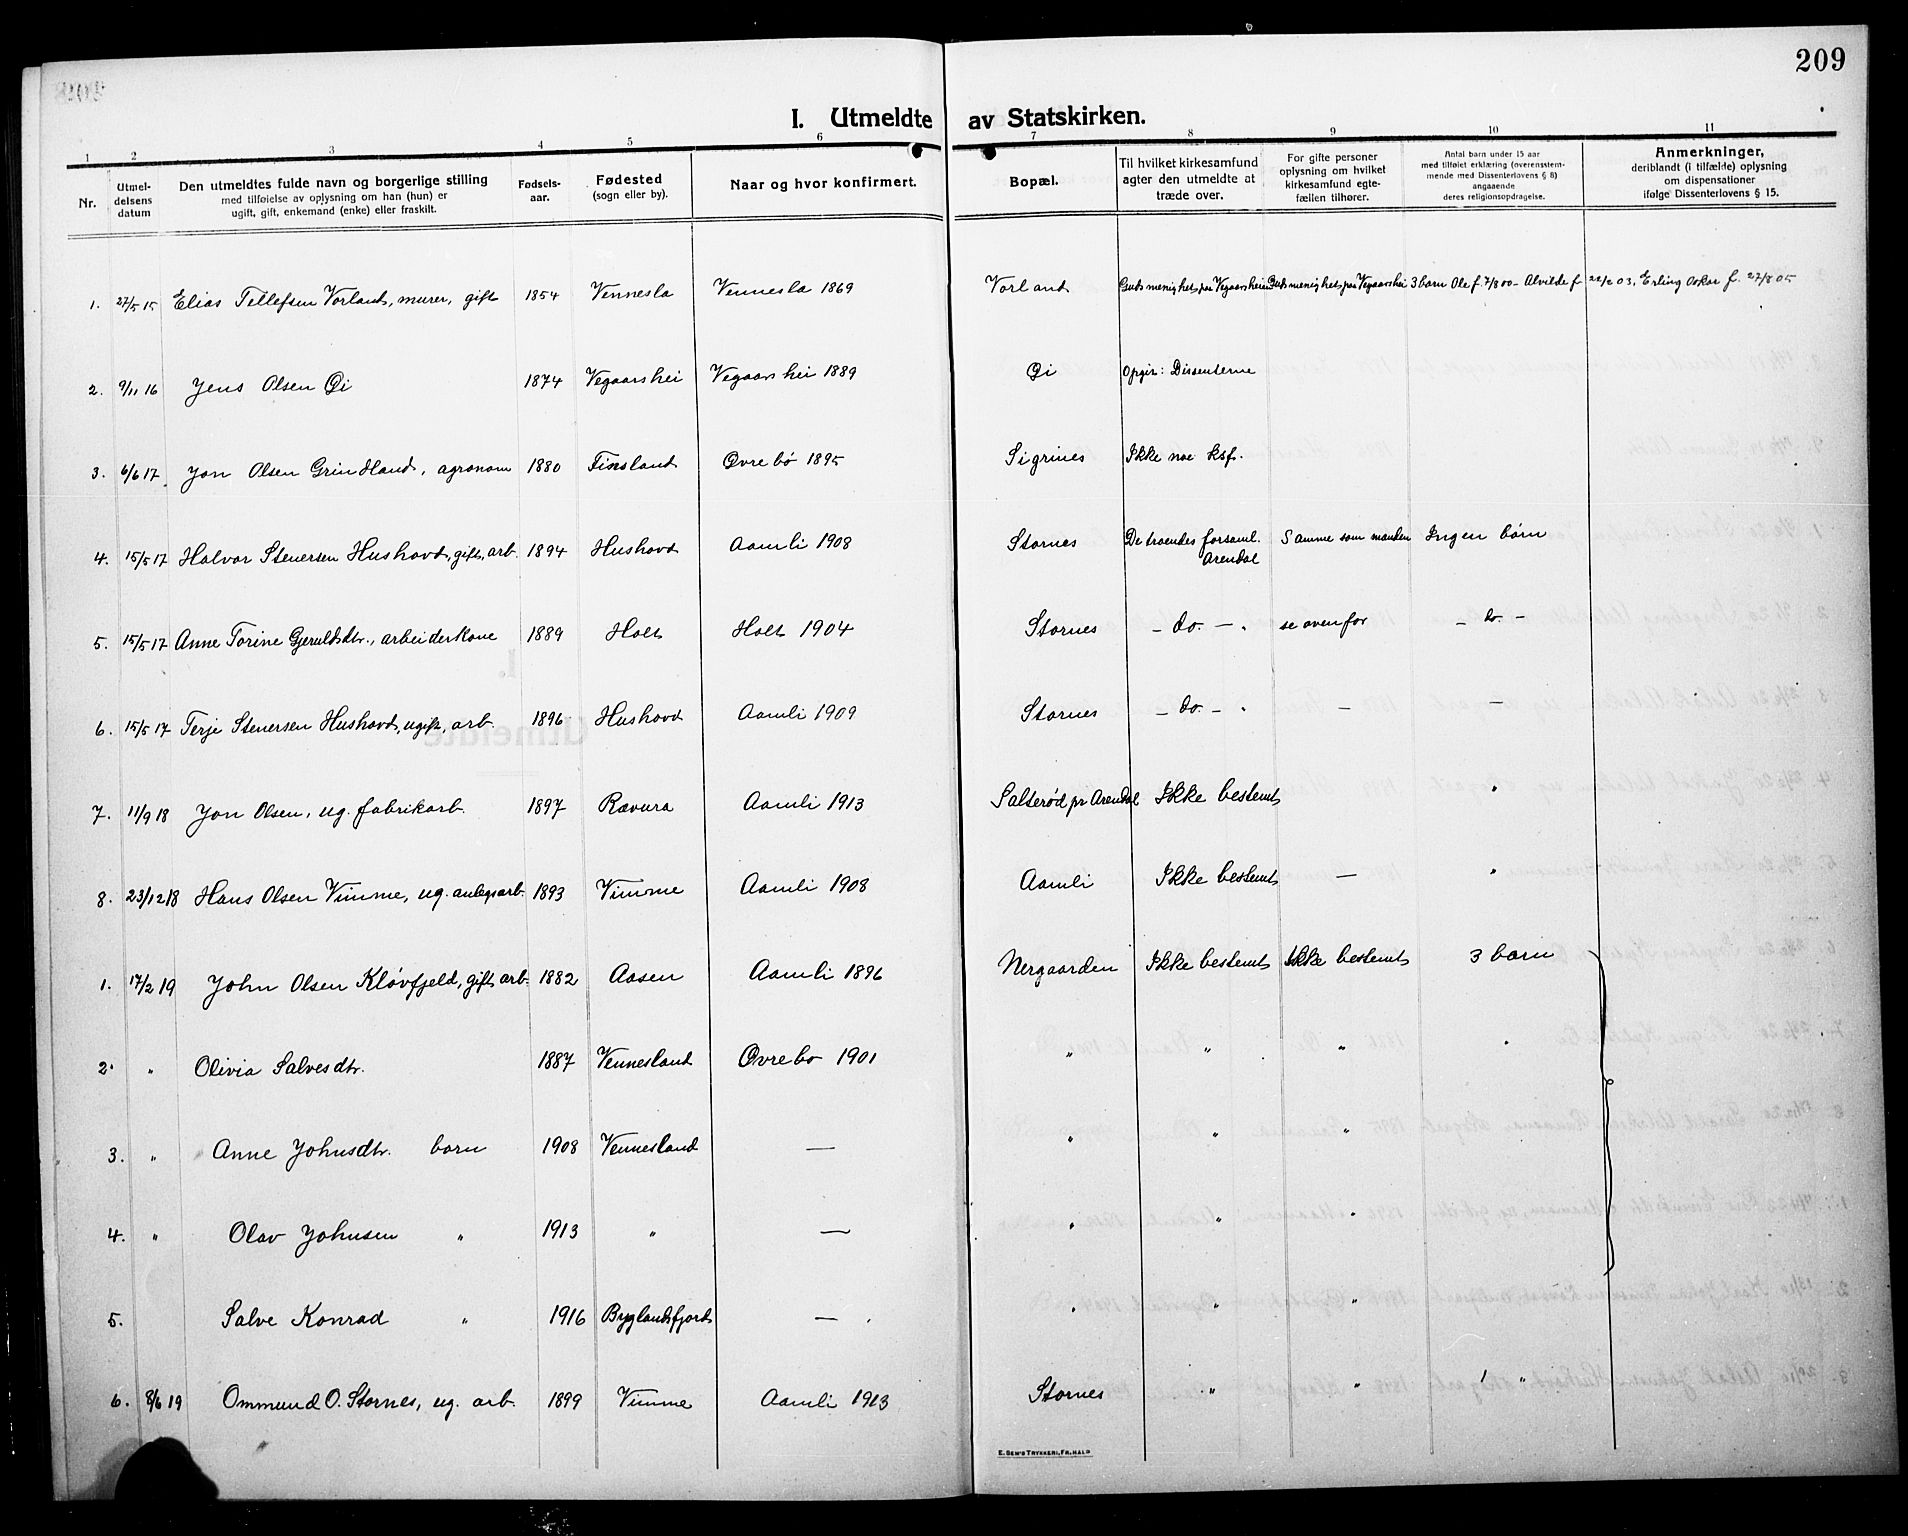 209
I. Utmeldte av Statskirken.
1 2 3 4 5 6 7 8 9 10 11
Nr.
Utmeldelsens datum
Den utmeldtes fulde navn og borgerlige stilling
med tilføielse av oplysning om han (hun) er
ugift, gift, enkemand (enke) eller fraskilt.
Fødsels-
aar.
Fødested
(sogn eller by).
Naar og hvor konfirmert.
Bopæl.
Til hvilket kirkesamfund
agter den utmeldte at
træde over.
For gifte personer
oplysning om hvilket
kirkesamfund egte-
fællen tilhører.
Antal barn under 15 aar
med tilføiet erklæring (overensstem-
mende med Dissenterlovens § 8)
angaaende
deres religionsopdragelse.
Anmerkninger,
deriblandt (i tilfælde) oplysning
om dispensationer
ifølge Dissenterlovens § 15.
1. 27/5 15 Elias Tellefsen Vorland, murer, gift 1854 Vennesla Vennesla 1869 Vorland Guds menighet paa Vegaarshei Guds menighet paa Vegaarshei 3 barn Ole f. 7/8 00 - Alvilde f 22/2 03, Erling Oskar f. 27/8 05
2. 9/11 16 Jens Olsen Øi 1874 Vegaarshei Vegaarshei 1889 Øi Opgir: Dissenterne
3. 6/6 17 Jon Olsen Grindland, agronom 1880 Finsland Øvrebö 1895 Sigrines Ikke noe ksf.
4. 15/5 17 Halvor Stenersen Hushovd, gift, arb. 1894 Hushovd Aamli 1908 Stornes De troendes forsaml. Arendal Samme som manden Ingen børn
5. 15/5 17 Anne Torine Gjeruldsdtr., arbeiderkone 1889 Holt Holt 1904 Stornes - do. - se ovenfor - do. -
6. 15/5 17 Terje Stenersen Hushovd, ugift, arb. 1896 Hushovd Aamli 1909 Stornes - do. - - -
7. 11/9 18 Jon Olsen, ug. fabrikarb. 1897 Rævura Aamli 1913 Salterød pr Arendal Ikke bestemt "
8. 23/12 18 Hans Olsen Vimme, ug. anlegsarb. 1893 Vimme Aamli 1908 Aamli Ikke bestemt - "
1. 17/2 19 John Olsen Kløvfjeld, gift arb. 1882 Aasen Aamli 1896 Nergaarden Ikke bestemt Ikke bestemt 3 barn
2. " Olivia Salvesdtr. 1887 Vennesland Øvrebo 1901 " " " "
3. " Anne Johnsdtr. barn 1908 Vennesland - " " "
4. " Olav Johnsen " 1913 " - " " "
5. Salve Konrad " 1916 Byglandsfjord - " " "
6. 8/6 19 Ommund O. Stornes, ug. arb. 1899 Vimme Aamli 1913 Stornes " " "
E. SEM'S TRYKKERI, FR.HALD